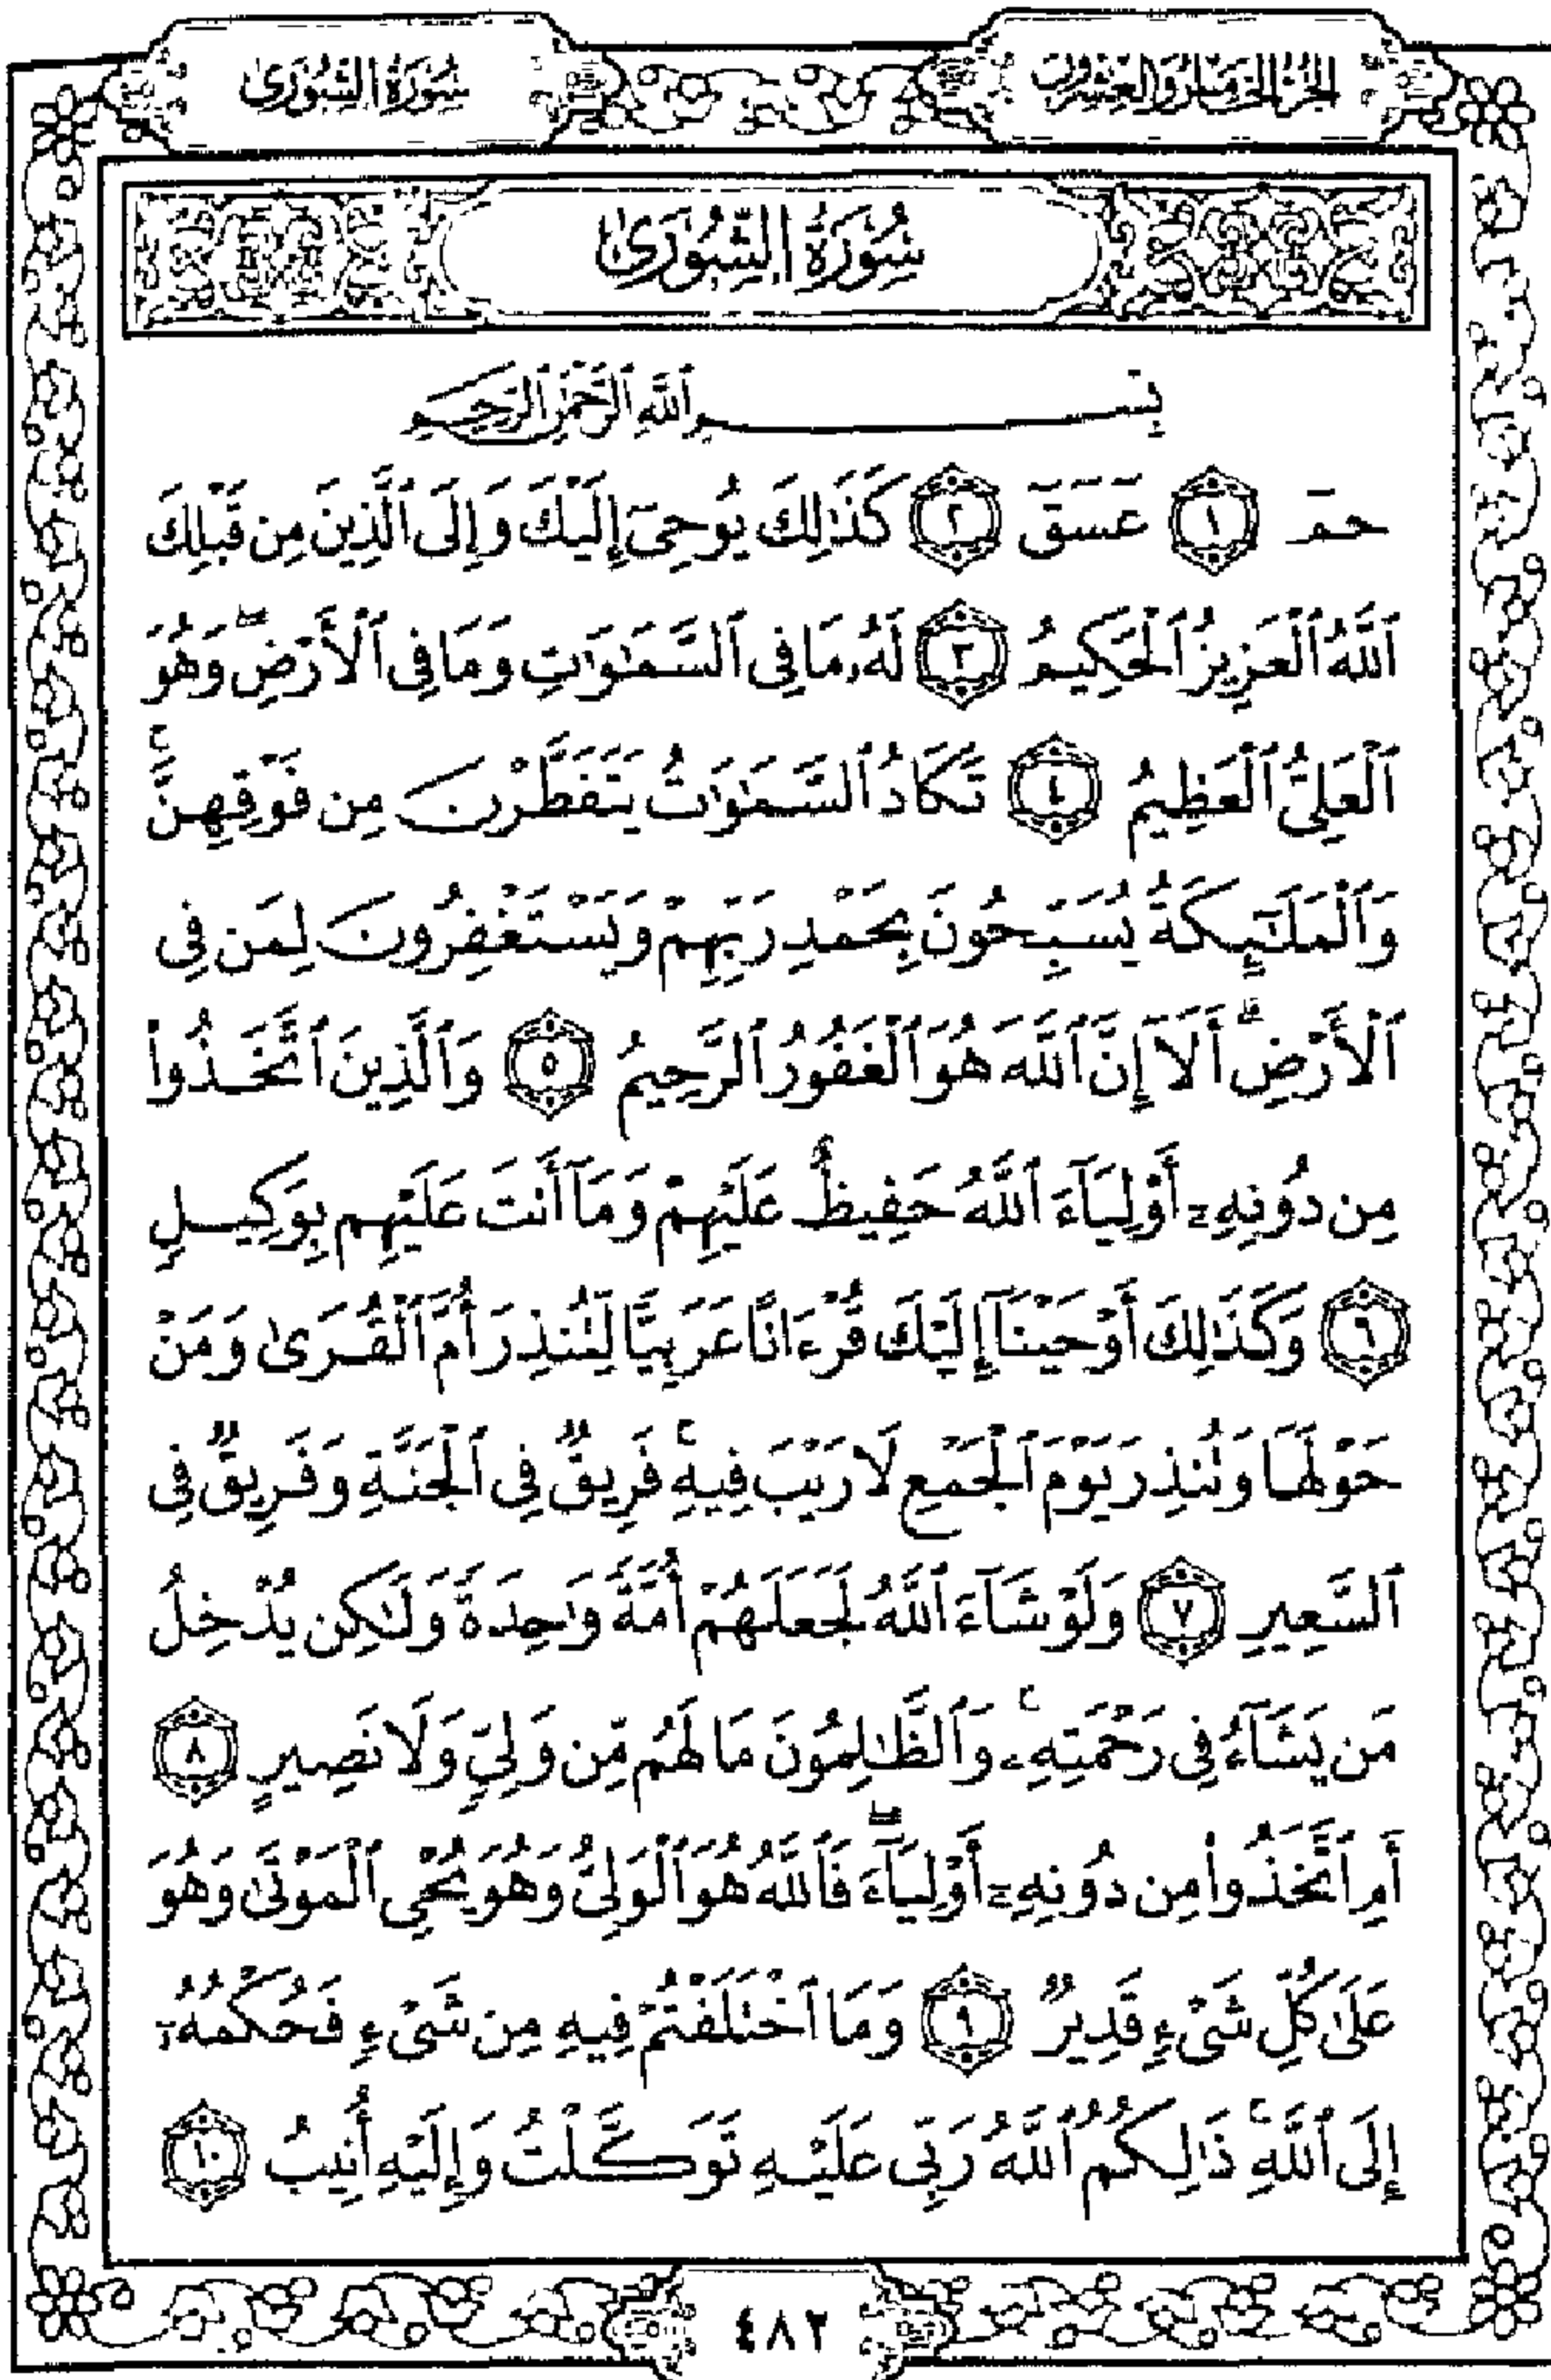 الجزء الخامس والعشرون
سُورَةُ الشُّورَىٰ
سُورَةُ الشُّورَىٰ
بِسْمِ ٱللَّهِ ٱلرَّحْمَٰنِ ٱلرَّحِيمِ
حمٓ ١ عٓسٓقٓ ٢ كَذَٰلِكَ يُوحِىٓ إِلَيْكَ وَإِلَى ٱلَّذِينَ مِن قَبْلِكَ
ٱللَّهُ ٱلْعَزِيزُ ٱلْحَكِيمُ ٣ لَهُۥ مَا فِى ٱلسَّمَٰوَٰتِ وَمَا فِى ٱلْأَرْضِۖ وَهُوَ
ٱلْعَلِىُّ ٱلْعَظِيمُ ٤ تَكَادُ ٱلسَّمَٰوَٰتُ يَتَفَطَّرْنَ مِن فَوْقِهِنَّۚ
وَٱلْمَلَٰٓئِكَةُ يُسَبِّحُونَ بِحَمْدِ رَبِّهِمْ وَيَسْتَغْفِرُونَ لِمَن فِى
ٱلْأَرْضِۗ أَلَآ إِنَّ ٱللَّهَ هُوَ ٱلْغَفُورُ ٱلرَّحِيمُ ٥ وَٱلَّذِينَ ٱتَّخَذُوا۟
مِن دُونِهِۦٓ أَوْلِيَآءَ ٱللَّهُ حَفِيظٌ عَلَيْهِمْ وَمَآ أَنتَ عَلَيْهِم بِوَكِيلٍ
٦ وَكَذَٰلِكَ أَوْحَيْنَآ إِلَيْكَ قُرْءَانًا عَرَبِيًّا لِّتُنذِرَ أُمَّ ٱلْقُرَىٰ وَمَنْ
حَوْلَهَا وَتُنذِرَ يَوْمَ ٱلْجَمْعِ لَا رَيْبَ فِيهِۚ فَرِيقٌ فِى ٱلْجَنَّةِ وَفَرِيقٌ فِى
ٱلسَّعِيرِ ٧ وَلَوْ شَآءَ ٱللَّهُ لَجَعَلَهُمْ أُمَّةً وَٰحِدَةً وَلَٰكِن يُدْخِلُ
مَن يَشَآءُ فِى رَحْمَتِهِۦۚ وَٱلظَّٰلِمُونَ مَا لَهُم مِّن وَلِىٍّ وَلَا نَصِيرٍ ٨
أَمِ ٱتَّخَذُوا۟ مِن دُونِهِۦٓ أَوْلِيَآءَۖ فَٱللَّهُ هُوَ ٱلْوَلِىُّ وَهُوَ يُحْىِ ٱلْمَوْتَىٰ وَهُوَ
عَلَىٰ كُلِّ شَىْءٍ قَدِيرٌ ٩ وَمَا ٱخْتَلَفْتُمْ فِيهِ مِن شَىْءٍ فَحُكْمُهُۥٓ
إِلَى ٱللَّهِۚ ذَٰلِكُمُ ٱللَّهُ رَبِّى عَلَيْهِ تَوَكَّلْتُ وَإِلَيْهِ أُنِيبُ ١٠
٤٨٣